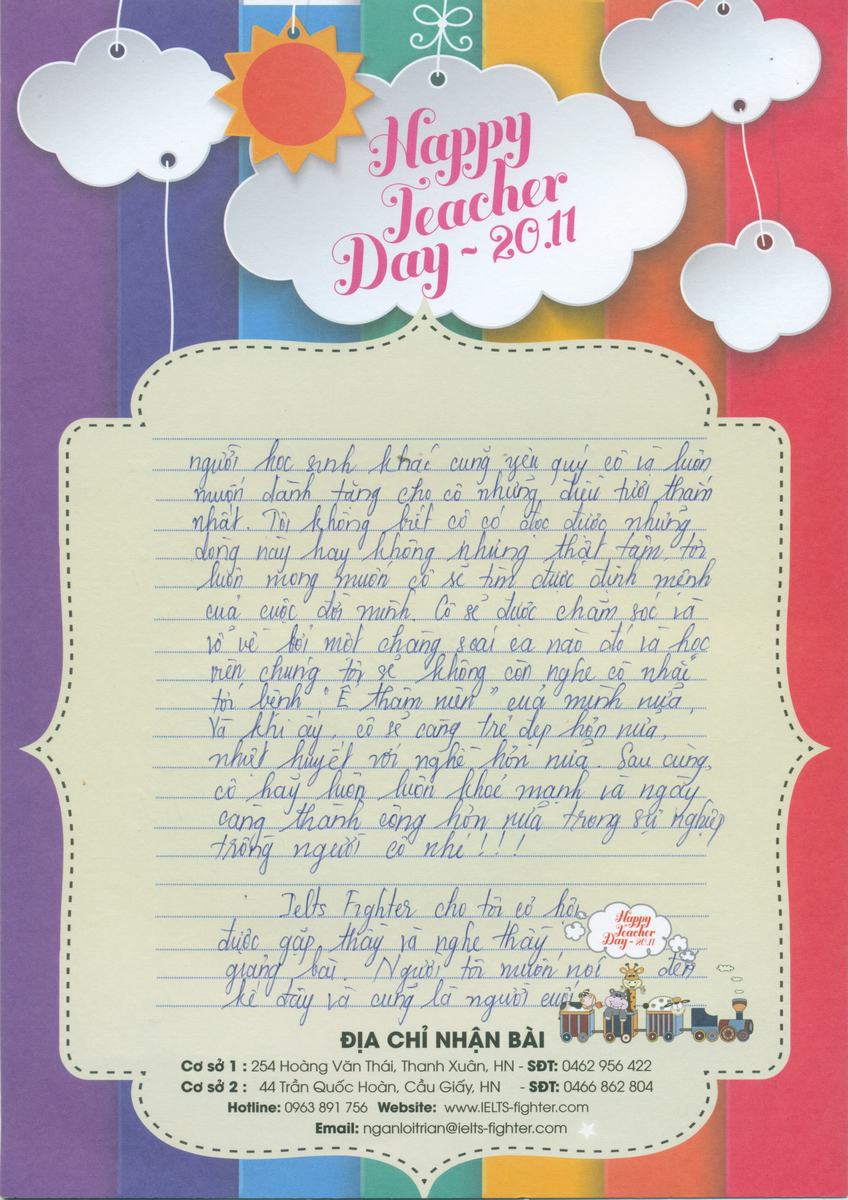 Happy
Teacher
Day ~ 20.11
người học sinh khác cũng yêu quý cô và luôn
muốn dành tặng cho cô những điều tươi thắm
nhất. Tôi không biết cô có đọc được những
dòng này hay không nhưng thật tâm, tôi
luôn mong muốn cô sẽ tìm được định mệnh
của cuộc đời mình. Cô sẽ được chăm sóc và
vỗ về bởi một chàng soái ca nào đó và học
viên chúng tôi sẽ không còn nghe cô nhắc
tới bệnh "Ế thâm niên" của mình nữa,
Và khi ấy, cô sẽ càng trẻ đẹp hơn nữa,
nhiệt huyết với nghề hơn nữa. Sau cùng,
cô hãy luôn luôn khoẻ mạnh và ngày
càng thành công hơn nữa trong sự nghiệp
trồng người cô nhé!!!
Ielts Fighter cho tôi cơ hội
được gặp thầy và nghe thầy
giảng bài. Người tôi muốn nói đến
kế đây và cũng là người cuối
Happy
Teacher
Day ~ 20.11
ĐỊA CHỈ NHẬN BÀI
Cơ sở 1 : 254 Hoàng Văn Thái, Thanh Xuân, HN - SĐT: 0462 956 422
Cơ sở 2 : 44 Trần Quốc Hoàn, Cầu Giấy, HN - SĐT: 0466 862 804
Hotline: 0963 891 756 Website: www.IELTS-fighter.com
Email: nganloitrian@ielts-fighter.com